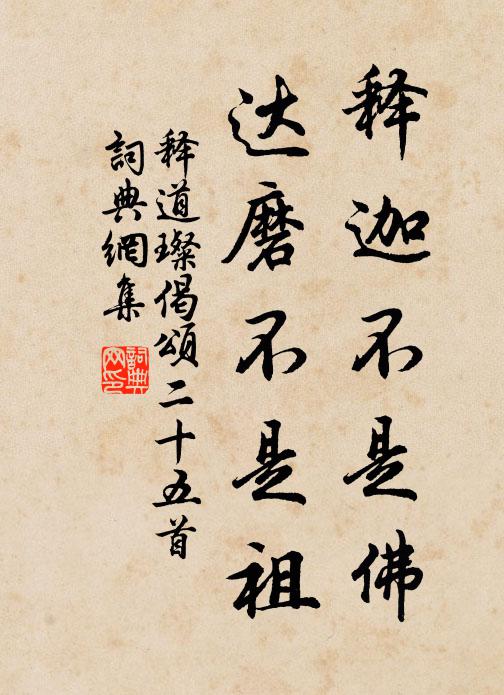 释迦不是佛
达磨不是祖
释道璨偈頌二十五首
詞典網集
詞典网印